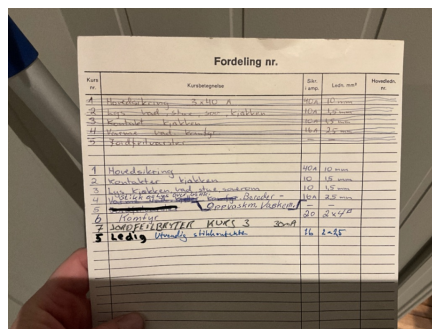 Fordeling nr.
Kurs nr. Kursbetegnelse Sikr. i amp. Ledn. mm² Hovedledn. nr.
1 Hovedsikring 3x40 A 40A 10 mm
2 Lys bad stue sov kjøkken 10A 1,5 mm
3 Kontakt kjøkken 10A 1,5 mm
4 Varme bad komfyr 16A 2,5 mm
5 Jordfeilvarsler – –
1 Hovedsikring 40A 10 mm
2 Kontakter kjøkken 10 1,5 mm
3 Lys kjøkken bad stue soverom 10 1,5 mm
4 Bereder – 16A 2,5 mm
5 Oppvaskm. Vaskem. – –
6 Komfyr 20 2x4
7 JORDFEILBRYTER KURS 3 30mA
5 Ledig Utvendig stikkontakt 16 2x2,5